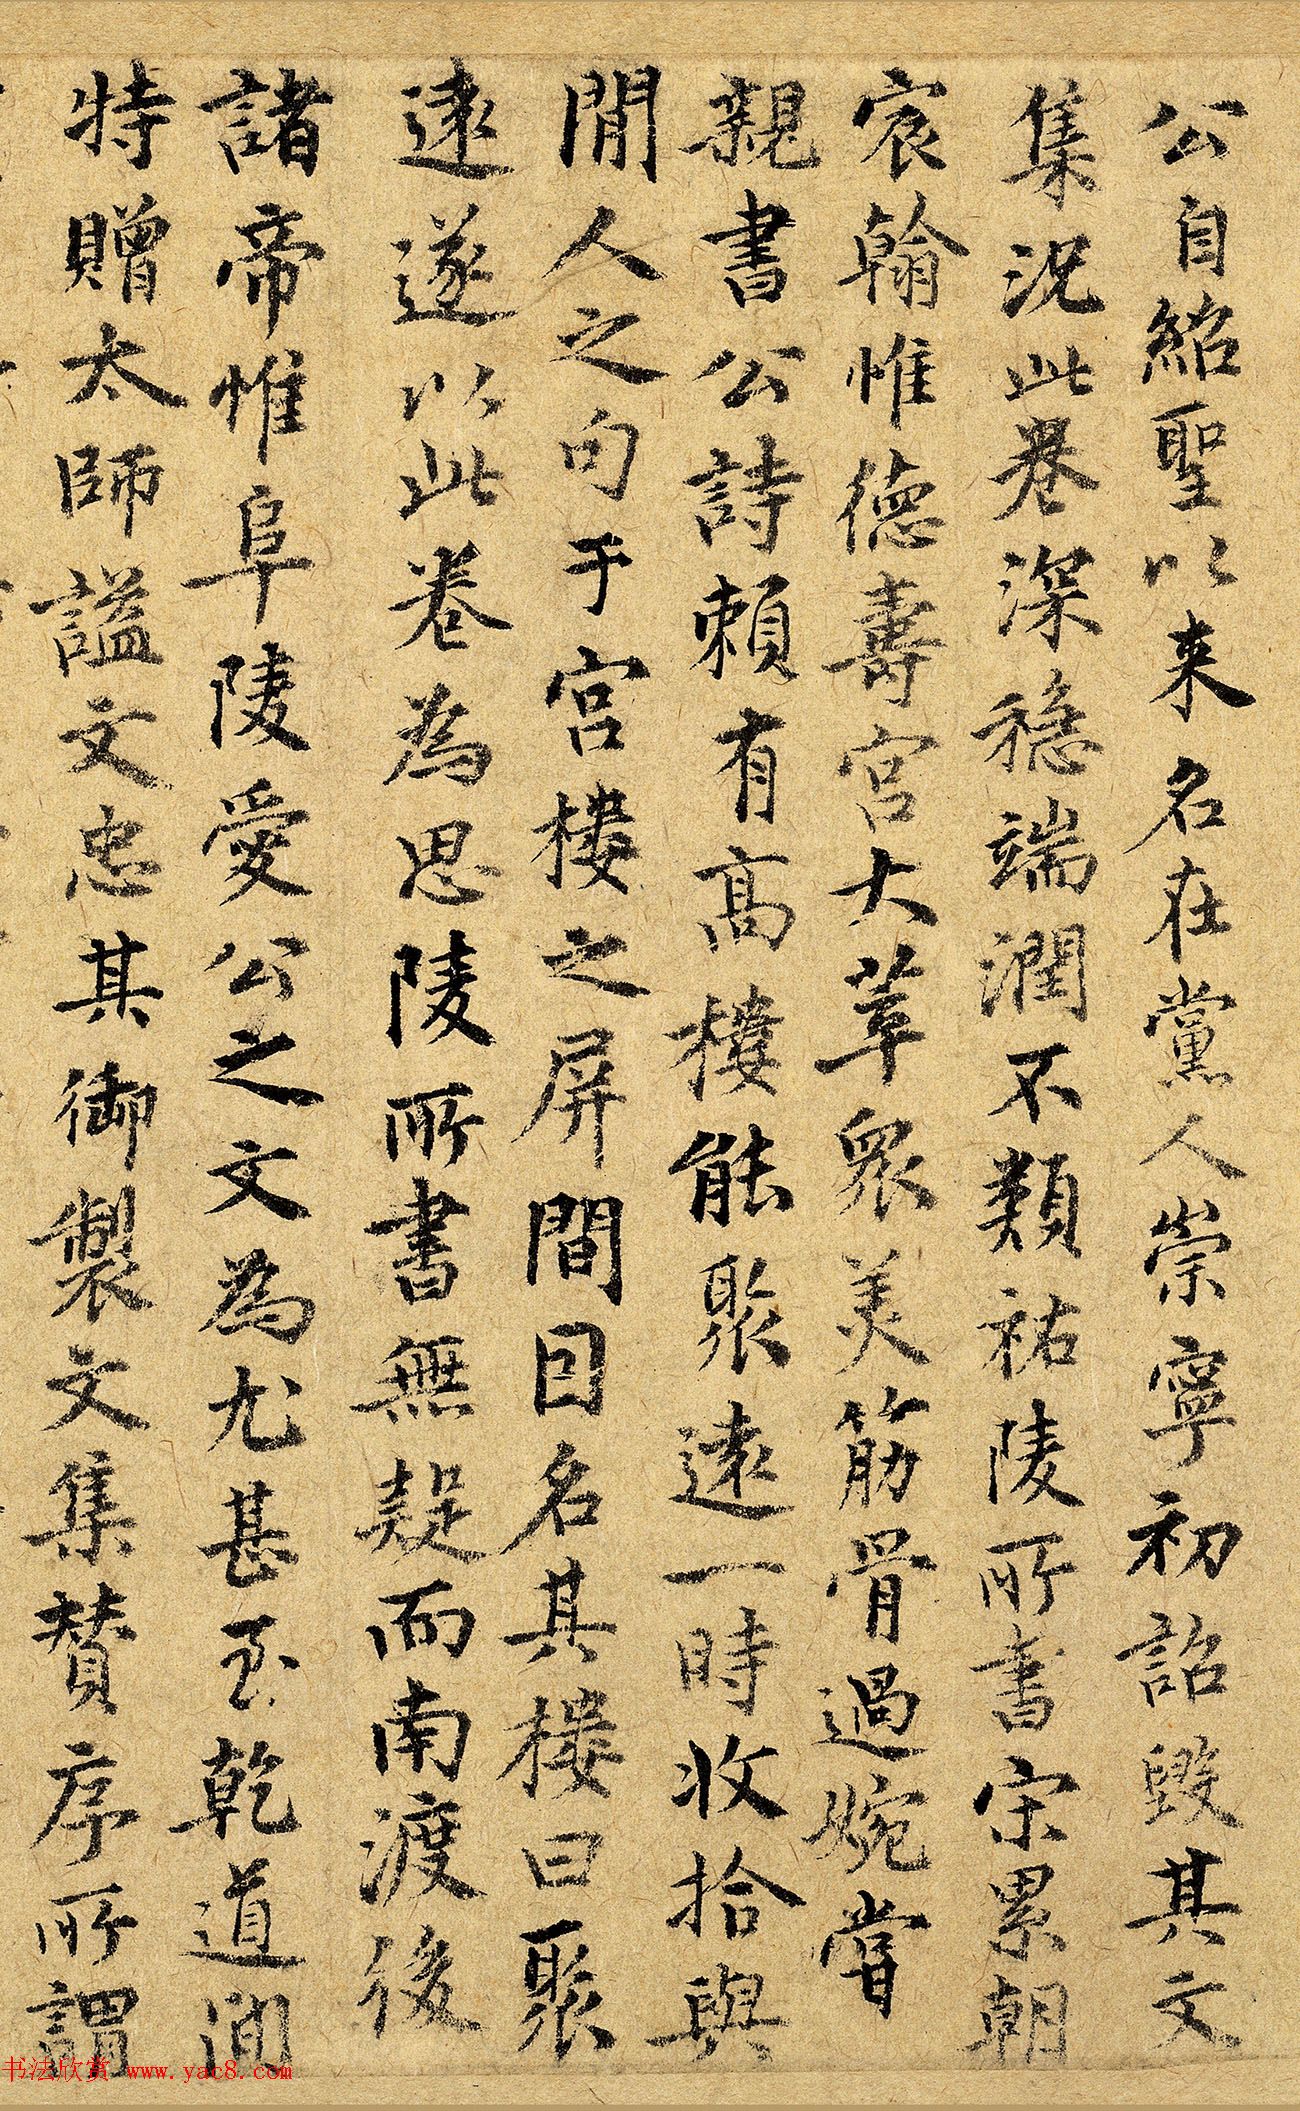 公自紹聖以来名在黨人崇寧初詔毀其文
集況此卷深穩端潤不類祐陵所書宋累朝
宸翰惟德壽宮大萃眾美筋骨過婉嘗
親書公詩賴有高樓能聚遠一時收拾與
閒人之句于宮樓之屏間因名其樓曰聚
遠遂以此卷為思陵所書無疑而南渡後
諸帝惟阜陵愛公之文為尤甚至乾道間
特贈太師謚文忠其御製文集贊序所謂
书法欣赏 www.yac8.com